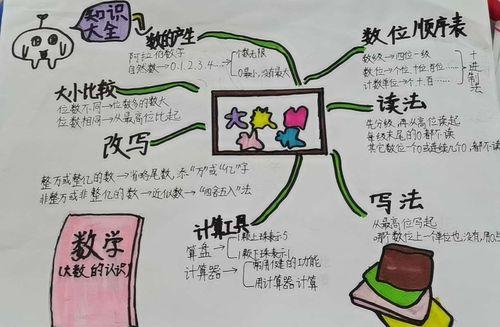 知识
大全
数的产生
阿拉伯数字
自然数→0.1.2.3.4……→
个数无限
0最小,没有最大
数位顺序表
数级→四位一级
数位→个位.十位.百位……
计数单位→个.十.百……
十进制法
大小比较
位数不同→位数多的数大
位数相同→从最高位比起
读法
先分级,再从高位读起
每级末尾的0都不读
其它数位一个0或连续几个0,都只读
改写
整万或整亿的数→省略尾数,添"万"或"亿"字
非整万或非整亿的数→近似数→"四舍五入"法
大
写法
从最高位写起
哪个数位上一个单位也没有,用0占
计算工具
算盘
1颗上珠表示5
1颗下珠表示1
计算器→
常用键的功能
用计算器计算
数学
(大数的认识)